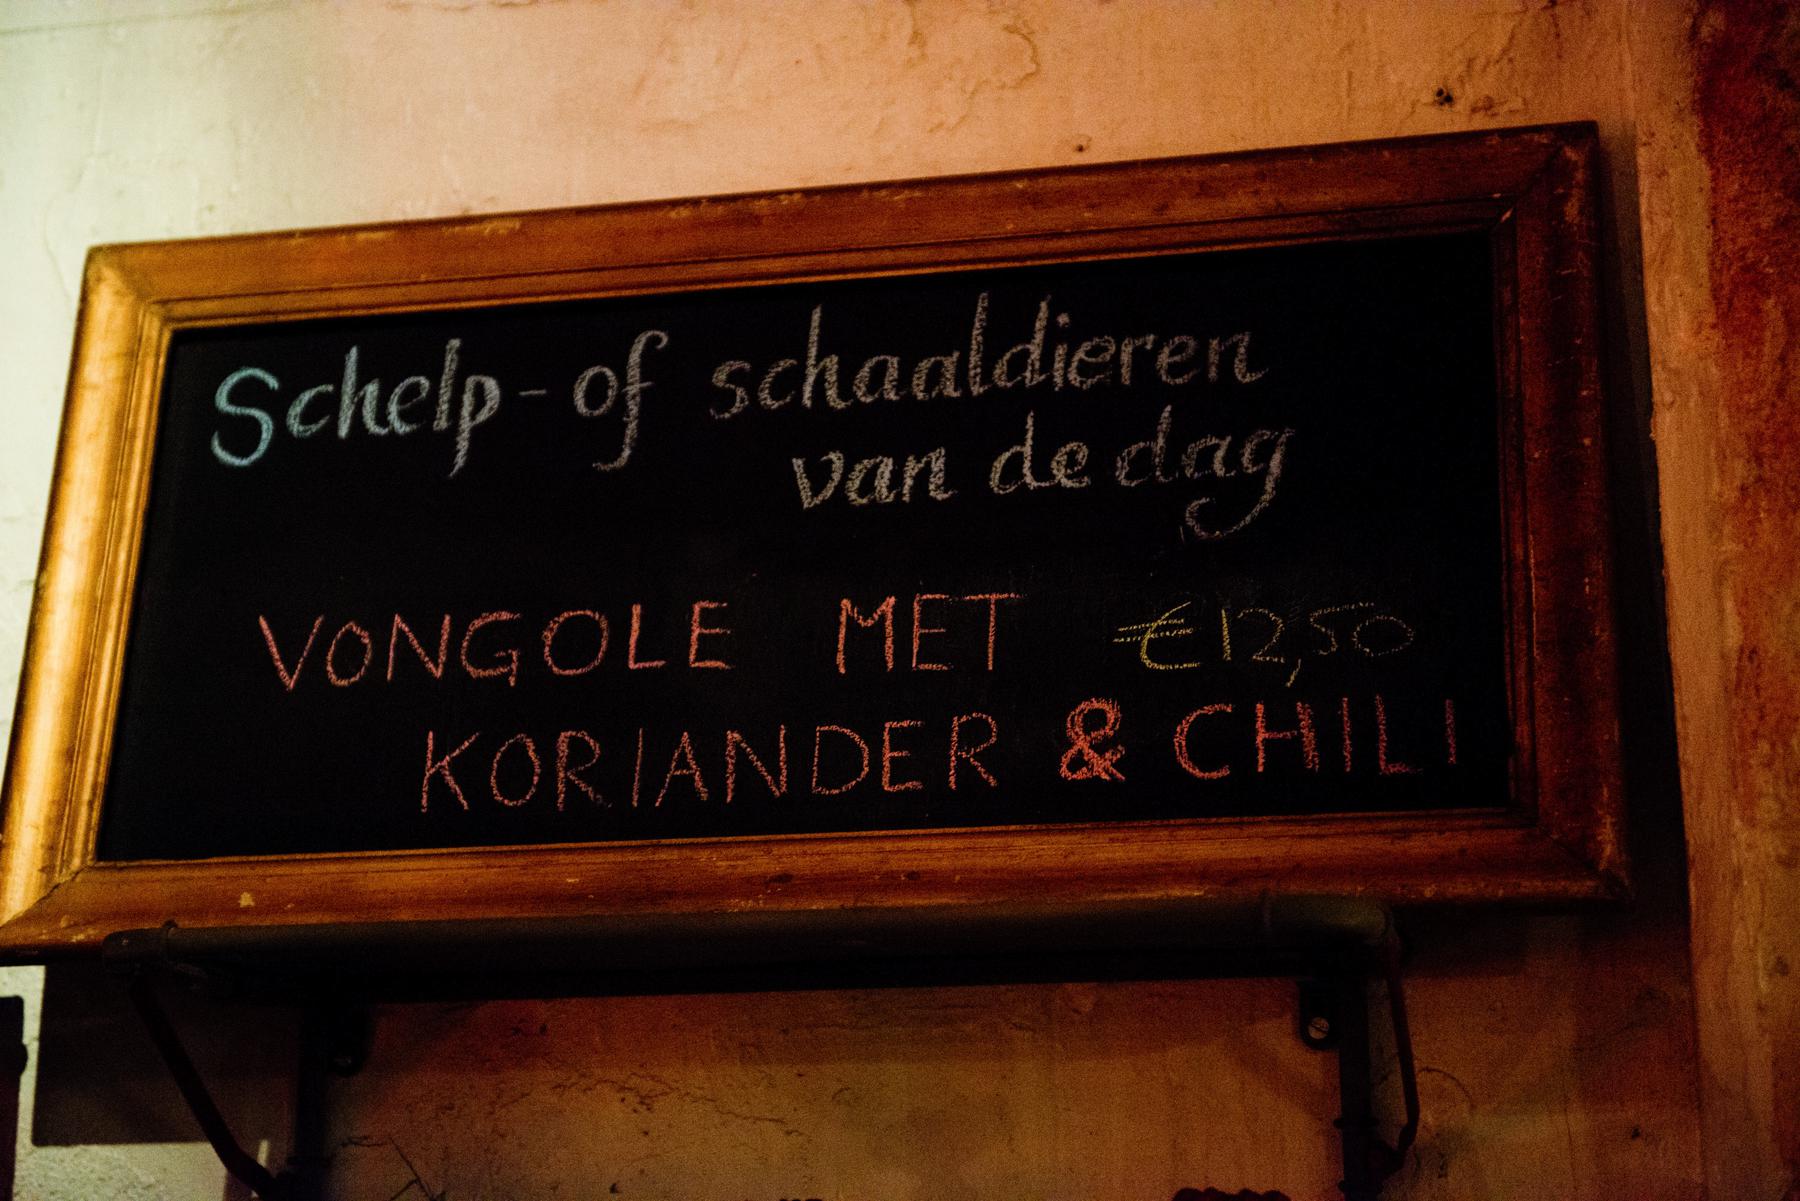 Schelp- of schaaldieren
van de dag
VONGOLE MET €12,50
KORIANDER & CHILI